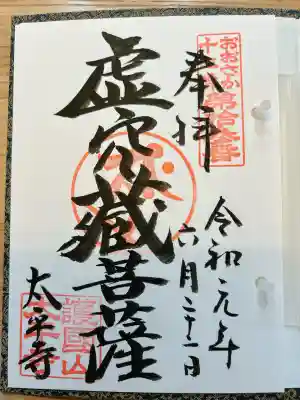 奉拝
令和元年
六月二十一日
虚空藏菩薩
太平寺
おおさか
十三佛第拾三番
護國山